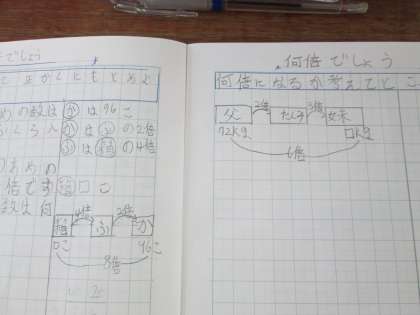 でしょう
めの数は
か は96こ
か は ふ の2倍
ふ は 箱 の4倍
倍です
箱 □ こ
数は何
4倍 2倍
箱 ふ か
□こ 96こ
8倍
何倍でしょう
何倍になるか考えてと
2倍 3倍
父 たし子 妹
72kg □kg
6倍